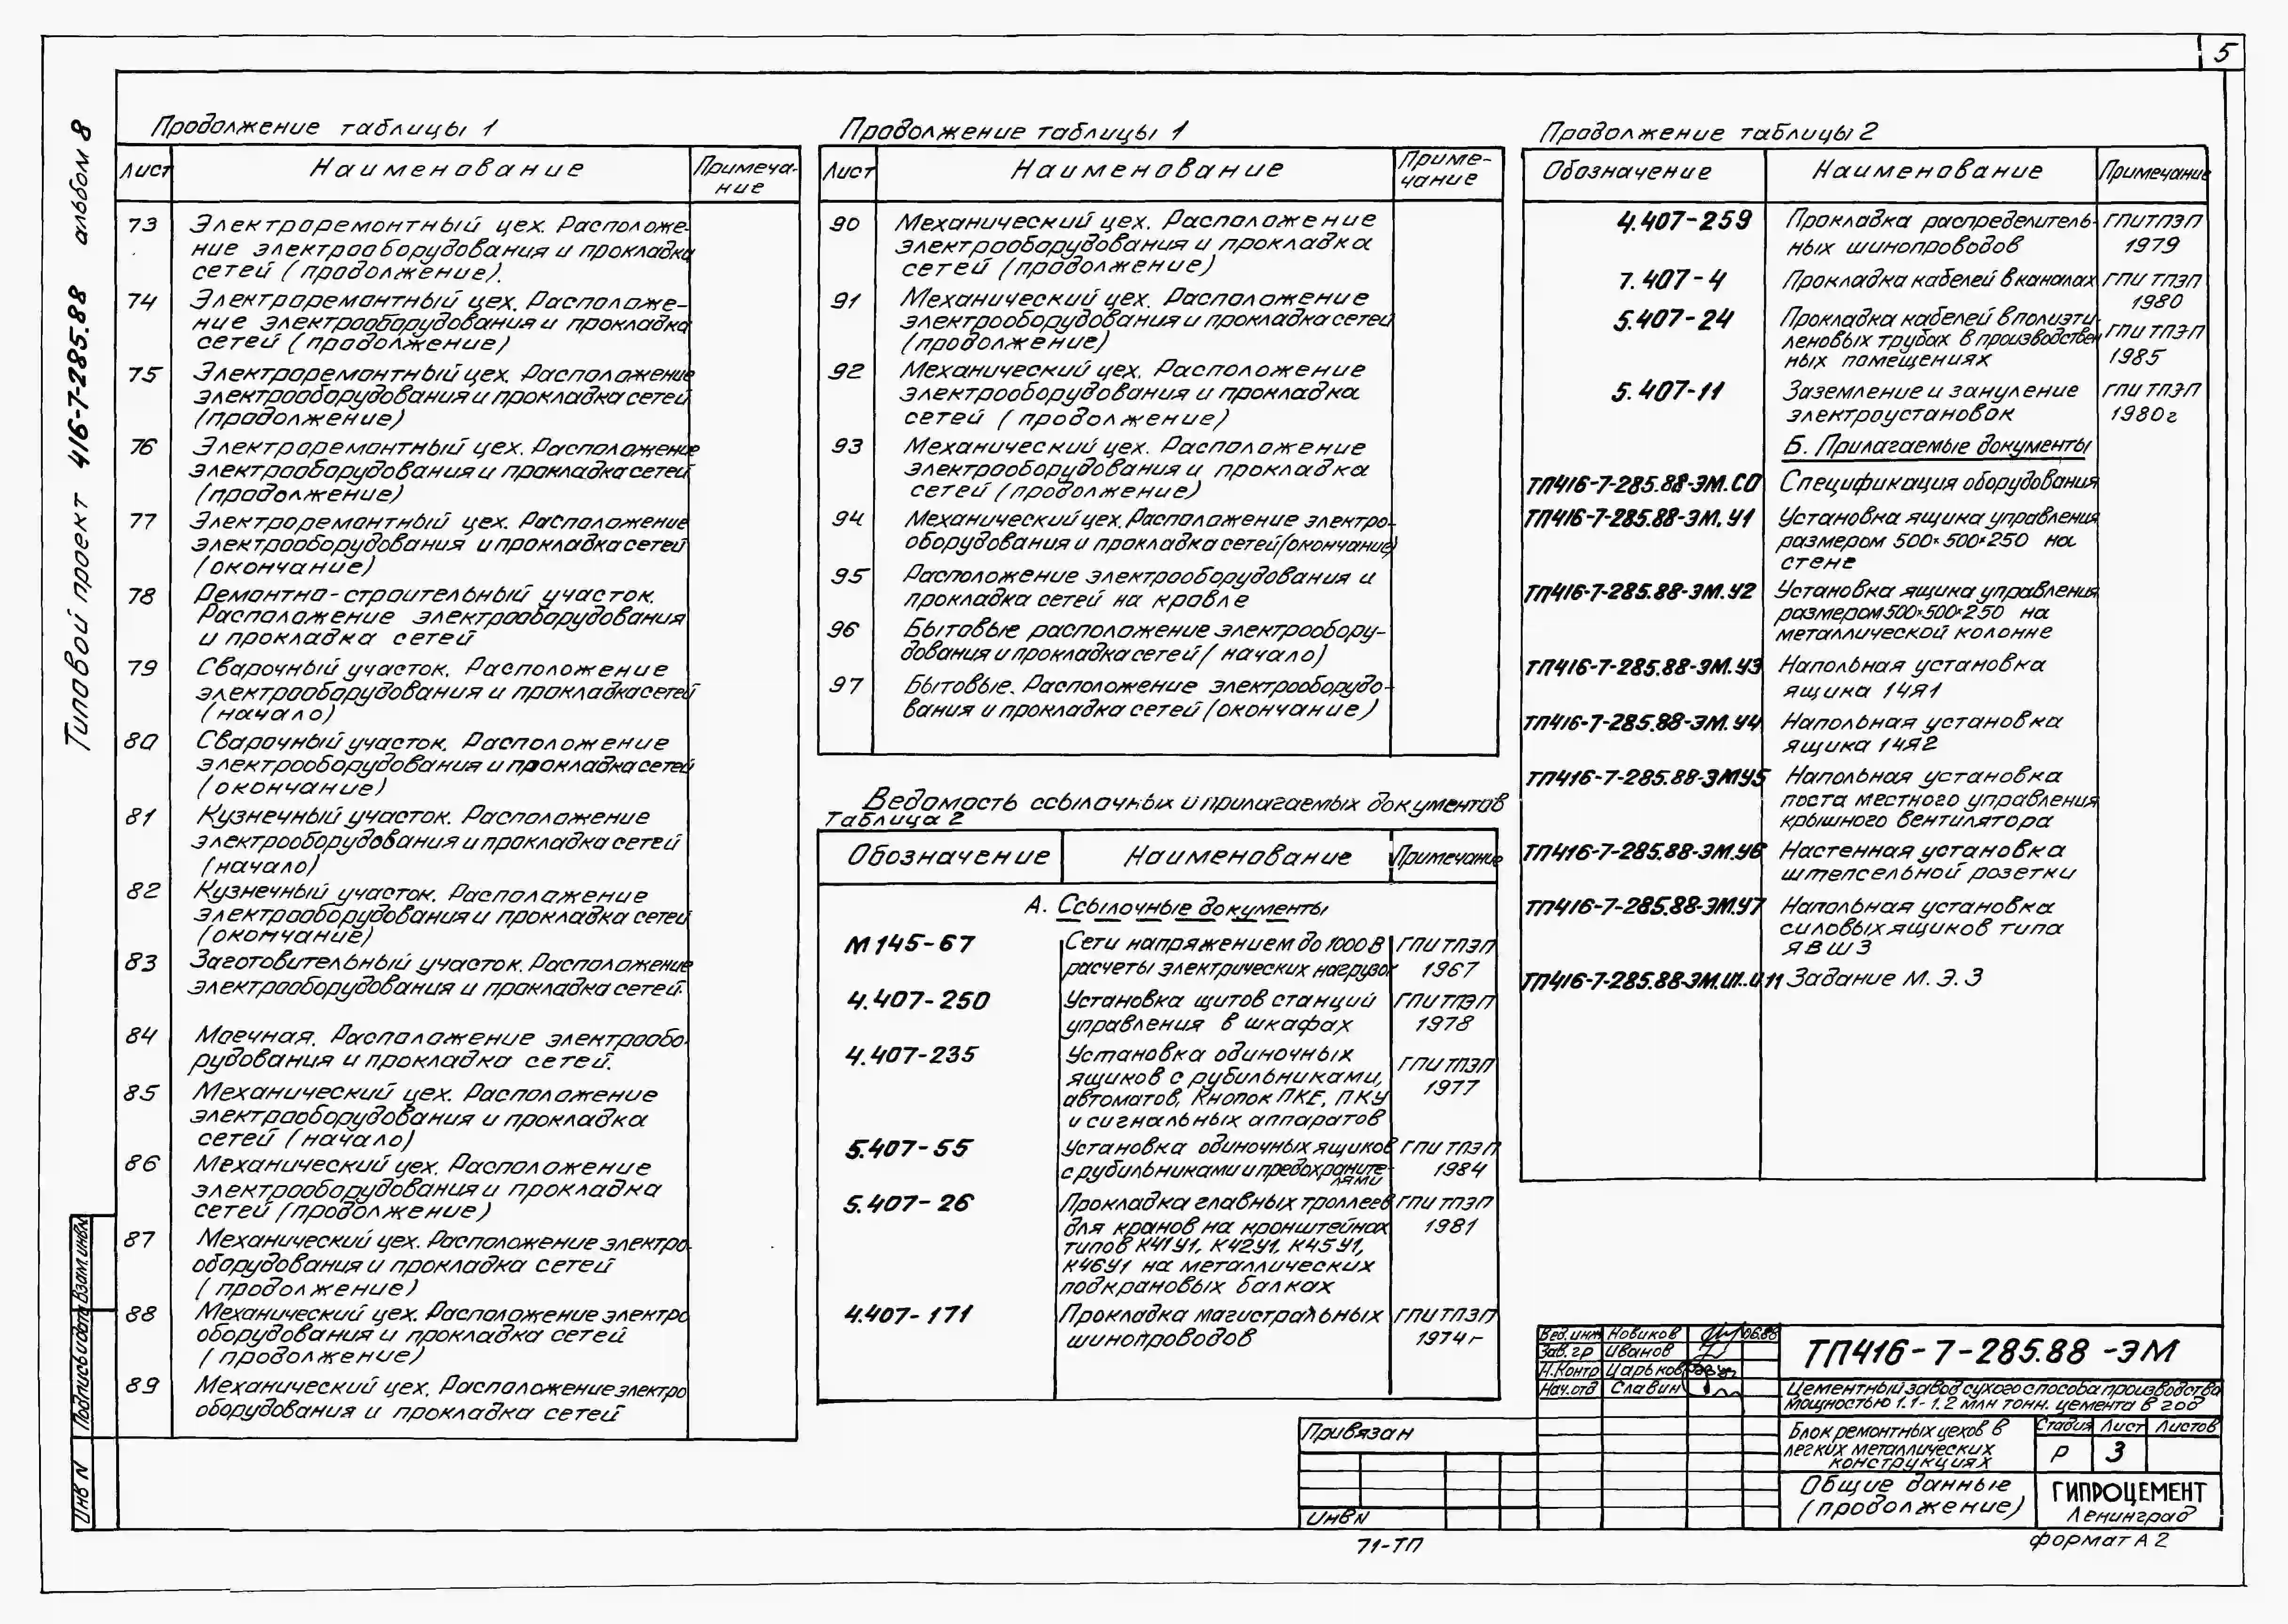 5
Типовой проект 416-7-285.88 альбом 8
Продолжение таблицы 1
Лист
Наименование
Примеча-
ние
73
Электроремонтный цех. Расположе-
ние электрооборудования и прокладка
сетей (продолжение).
74
Электроремонтный цех. Расположе-
ние электрооборудования и прокладка
сетей (продолжение)
75
Электроремонтный цех. Расположение
электрооборудования и прокладка сетей
(продолжение)
76
Электроремонтный цех. Расположение
электрооборудования и прокладка сетей
(продолжение)
77
Электроремонтный цех. Расположение
электрооборудования и прокладка сетей
(окончание)
78
Ремонтно-строительный участок.
Расположение электрооборудования
и прокладка сетей
79
Сварочный участок. Расположение
электрооборудования и прокладка сетей
(начало)
80
Сварочный участок. Расположение
электрооборудования и прокладка сетей
(окончание)
81
Кузнечный участок. Расположение
электрооборудования и прокладка сетей
(начало)
82
Кузнечный участок. Расположение
электрооборудования и прокладка сетей
(окончание)
83
Заготовительный участок. Расположение
электрооборудования и прокладка сетей.
84
Моечная. Расположение электрообо-
рудования и прокладка сетей.
85
Механический цех. Расположение
электрооборудования и прокладка
сетей (начало)
86
Механический цех. Расположение
электрооборудования и прокладка
сетей (продолжение)
87
Механический цех. Расположение электро-
оборудования и прокладка сетей
(продолжение)
88
Механический цех. Расположение электро
оборудования и прокладка сетей
(продолжение)
89
Механический цех. Расположение электро
оборудования и прокладка сетей
Продолжение таблицы 1
Лист
Наименование
Приме-
чание
90
Механический цех. Расположение
электрооборудования и прокладка
сетей (продолжение)
91
Механический цех. Расположение
электрооборудования и прокладка сетей
(продолжение)
92
Механический цех. Расположение
электрооборудования и прокладка
сетей (продолжение)
93
Механический цех. Расположение
электрооборудования и прокладка
сетей (продолжение)
94
Механический цех. Расположение электро-
оборудования и прокладка сетей (окончание)
95
Расположение электрооборудования и
прокладка сетей на кровле
96
Бытовые расположение электрообору-
дования и прокладка сетей (начало)
97
Бытовые. Расположение электрооборудо-
вания и прокладка сетей (окончание)
Ведомость ссылочных и прилагаемых документов
Таблица 2
Обозначение
Наименование
Примечание
А. Ссылочные документы
М145-67
Сети напряжением до 1000 В
расчеты электрических нагрузок
ГПИ ТПЭП
1967
4.407-250
Установка щитов станций
управления в шкафах
ГПИ ТПЭП
1978
4.407-235
Установка одиночных
ящиков с рубильниками,
автоматов, Кнопок ПКЕ, ПКУ
и сигнальных аппаратов
ГПИ ТПЭП
1977
5.407-55
Установка одиночных ящиков
с рубильниками и предохраните-
лями
ГПИ ТПЭП
1984
5.407-26
Прокладка главных троллеев
для кранов на кронштейнах
типов К41У1, К42У1, К45У1,
К46У1 на металлических
подкрановых балках
ГПИ ТПЭП
1981
4.407-171
Прокладка магистральных
шинопроводов
ГПИ ТПЭП
1974г
Продолжение таблицы 2
Обозначение
Наименование
Примечание
4.407-259
Прокладка распределитель-
ных шинопроводов
ГПИ ТПЭП
1979
7.407-4
Прокладка кабелей в каналах
ГПИ ТПЭП
1980
5.407-24
Прокладка кабелей в полиэти-
леновых трубах в производствен
ных помещениях
ГПИ ТПЭП
1985
5.407-11
Заземление и зануление
электроустановок
ГПИ ТПЭП
1980г
Б. Прилагаемые документы
ТП416-7-285.88-ЭМ.СО
Спецификация оборудования
ТП416-7-285.88-ЭМ.У1
Установка ящика управления
размером 500×500×250 на
стене
ТП416-7-285.88-ЭМ.У2
Установка ящика управления
размером 500×500×250 на
металлической колонне
ТП416-7-285.88-ЭМ.У3
Напольная установка
ящика 1ЧЯ1
ТП416-7-285.88-ЭМ.У4
Напольная установка
ящика 1ЧЯ2
ТП416-7-285.88-ЭМУ5
Напольная установка
поста местного управления
крышного вентилятора
ТП416-7-285.88-ЭМ.У6
Настенная установка
штепсельной розетки
ТП416-7-285.88-ЭМ.У7
Напольная установка
силовых ящиков типа
ЯВШ3
ТП416-7-285.88-ЭМ.И1..И11
Задание М.Э.З
Вед.инж Новиков 06.88
Зав.гр Иванов
Н.Контр Царьков
Нач.отд Славин
ТП416-7-285.88-ЭМ
Цементный завод сухого способа производства
мощностью 1.1-1.2 млн тонн. цемента в год
Блок ремонтных цехов в
легких металлических
конструкциях
Стадия Лист Листов
Р 3
Общие данные
(продолжение)
ГИПРОЦЕМЕНТ
Ленинград
Привязан
Инв N
71-ТП
формат А2
Взам.инв.N
Подпись и дата
Инв N